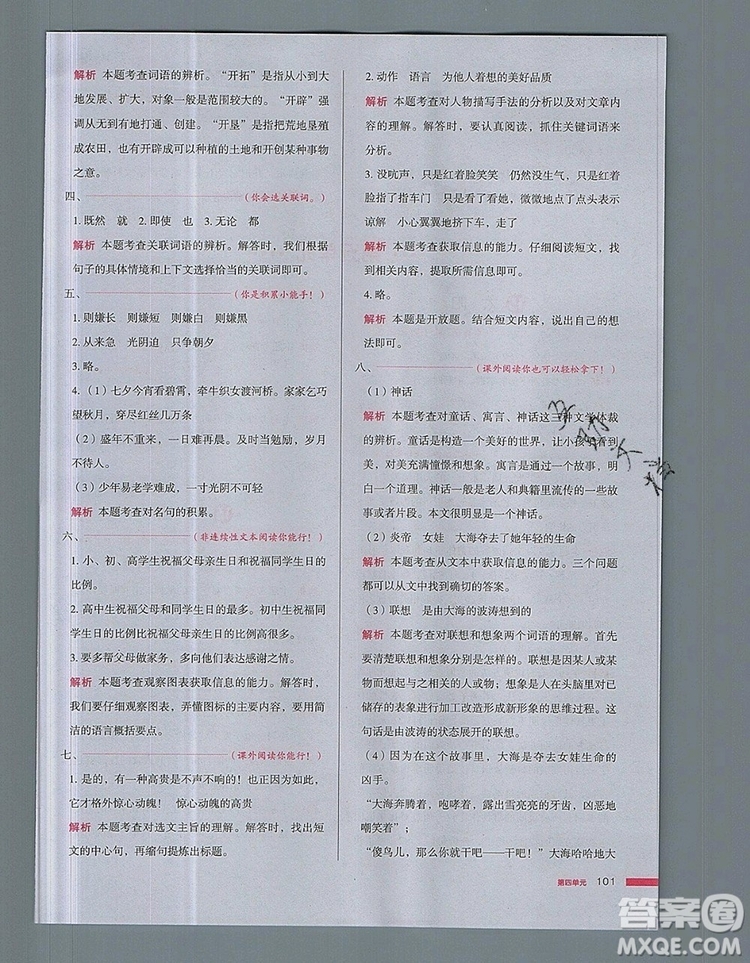 解析 本题考查词语的辨析。“开拓”是指从小到大
地发展、扩大，对象一般是范围较大的。“开辟”强
调从无到有地打通、创建。“开垦”是指把荒地垦殖
成农田，也有开辟成可以种植的土地和开创某种事物
之意。
四、（你会选关联词。）
1. 既然 就 2. 即使 也 3. 无论 都
解析 本题考查关联词语的辨析。解答时，我们根据
句子的具体情境和上下文选择恰当的关联词即可。
五、（你是积累小能手！）
1. 则嫌长 则嫌短 则嫌白 则嫌黑
2. 从来急 光阴迫 只争朝夕
3. 略。
4. （1）七夕今宵看碧霄，牵牛织女渡河桥。家家乞巧
望秋月，穿尽红丝几万条
（2）盛年不重来，一日难再晨。及时当勉励，岁月
不待人。
（3）少年易老学难成，一寸光阴不可轻
解析 本题考查对名句的积累。
六、（非连续性文本阅读你能行！）
1. 小、初、高学生祝福父母亲生日和祝福同学生日的
比例。
2. 高中生祝福父母和同学生日的最多。初中生祝福同
学生日的比例比祝福父母亲生日的比例高很多。
3. 要多帮父母做家务，多向他们表达感谢之情。
解析 本题考查观察图表获取信息的能力。解答时，
我们要仔细观察图表，弄懂图标的主要内容，要用简
洁的语言概括要点。
七、（课外阅读你能行！）
1. 是的，有一种高贵是不声不响的！但正因为如此，
它才格外惊心动魄！ 惊心动魄的高贵
解析 本题考查对选文主旨的理解。解答时，找出短
文的中心句，再缩句提炼出标题。
2. 动作 语言 为他人着想的美好品质
解析 本题考查对人物描写手法的分析以及对文章内
容的理解。解答时，要认真阅读，抓住关键词语来
分析。
3. 没吭声，只是红着脸笑笑 仍然没生气，只是红着
脸指了指车门 只是看了看她，微微地点了点头表示
谅解 小心翼翼地挤下车，走了
解析 本题考查获取信息的能力。仔细阅读短文，找
到相关内容，提取所需的信息即可。
4. 略。
解析 本题是开放题。结合短文内容，说出自己的想
法即可。
八、（课外阅读你也可以轻松拿下！）
（1）神话
解析 本题考查对童话、寓言、神话这三种文学体裁
的辨析。童话是构造一个美好的世界，让小孩子看到
美，对美充满憧憬和想象。寓言是通过一个故事，明
白一个道理。神话一般是老人和典籍里流传的一些故
事或者片段。本文很明显是一个神话。
（2）炎帝 女娃 大海夺去了她年轻的生命
解析 本题考查从文本中获取信息的能力。三个问题
都可以从文中找到确切的答案。
（3）联想 是由大海的波涛想到的
解析 本题考查对联想和想象两个词语的理解。首先
要清楚联想和想象分别是怎样的。联想是因某人或某
物而想起与之相关的人或物；想象是人在头脑里对已
储存的表象进行加工改造形成新形象的思维过程。这
句话是由波涛的状态展开的联想。
（4）因为在这个故事里，大海是夺去女娃生命的
凶手。
“大海奔腾着，咆哮着，露出雪亮亮的牙齿，凶恶地
嘲笑着”；
“傻鸟儿，那么你就干吧——干吧！”大海哈哈地大
第四单元 101
答案圈
MXQE.COM